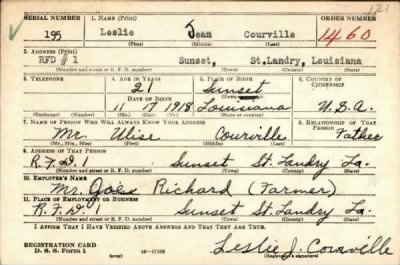 121
SERIAL NUMBER 1. NAME (Print) ORDER NUMBER
195 Leslie Jean Courville 1460
(First) (Middle) (Last)
2. ADDRESS (Print)
RFD # 1 Sunset, St.Landry, Louisiana
(Number and street or R. F. D. number) (Town) (County) (State)
3. TELEPHONE 4. AGE IN YEARS 5. PLACE OF BIRTH 6. COUNTRY OF CITIZENSHIP
21 Sunset
(Town or county)
DATE OF BIRTH
11 17 1918 Louisiana U.S.A.
(Exchange) (Number) (Mo.) (Day) (Yr.) (State or country)
7. NAME OF PERSON WHO WILL ALWAYS KNOW YOUR ADDRESS 8. RELATIONSHIP OF THAT PERSON
Mr. Ulise Courville Father
(Mr., Mrs., Miss) (First) (Middle) (Last)
9. ADDRESS OF THAT PERSON
R.F.D. 1 Sunset St. Landry La.
(Number and street or R. F. D. number) (Town) (County) (State)
10. EMPLOYER'S NAME
Mr. Richard (Farmer)
11. PLACE OF EMPLOYMENT OR BUSINESS
R.F.D. 1 Sunset St. Landry La.
(Number and street or R. F. D. number) (Town) (County) (State)
I AFFIRM THAT I HAVE VERIFIED ABOVE ANSWERS AND THAT THEY ARE TRUE.
REGISTRATION CARD
D. S. S. Form 1 (over) 16-17105 Leslie J. Courville
(Registrant's signature)